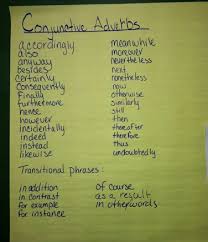 Conjunctive Adverbs
accordingly
also
anyway
besides
certainly
Consequently
Finally
furthermore
hense
however
incidentally
indeed
instead
likewise
meanwhile
moreover
nevertheless
next
nonetheless
now
otherwise
similarly
still
then
thereafter
therefore
thus
undoubtedly
Transitional phrases:
in addition
in contrast
for example
for instance
of course
as a result
in otherwords